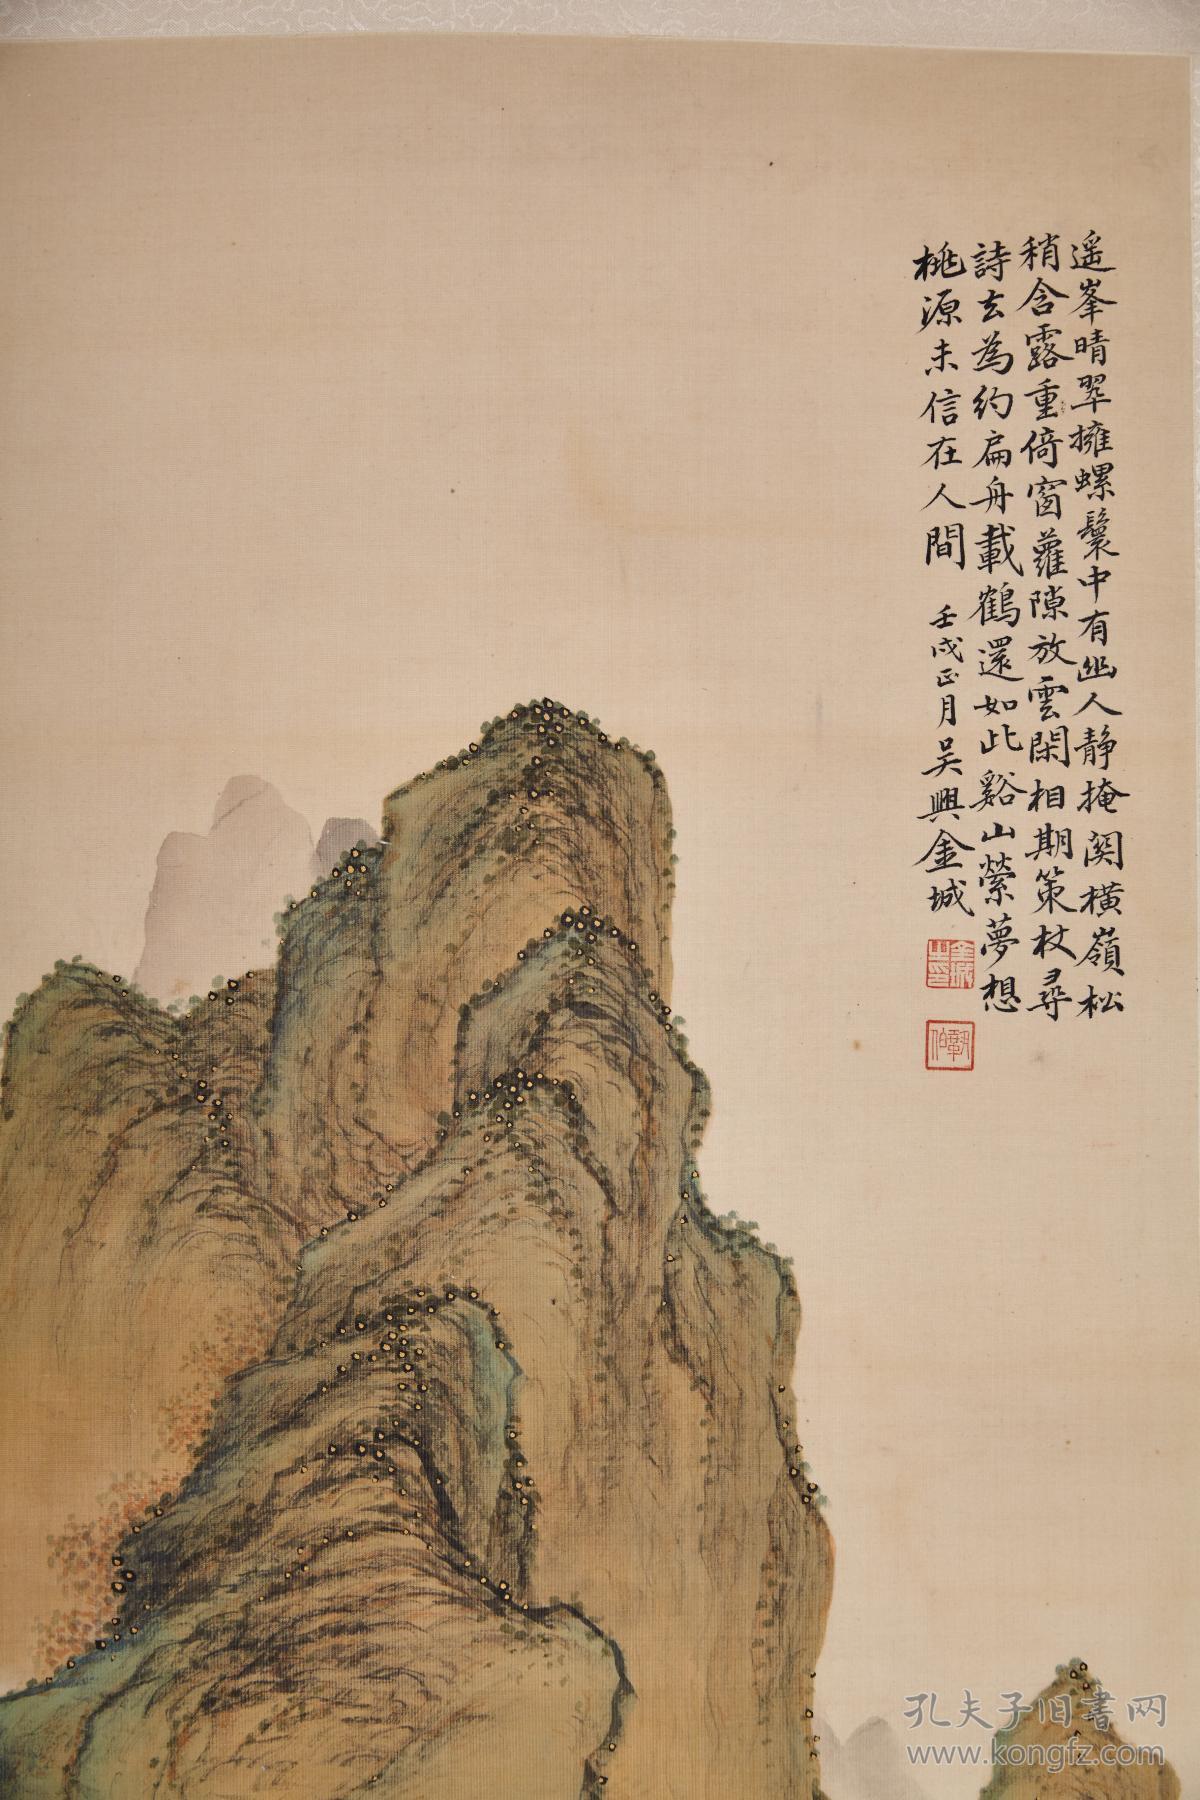 遥峯晴翠擁螺鬟中有幽人静掩関橫嶺松
稍含露重倚窗蘿隙放雲閑相期策杖尋
詩去為約扁舟載鶴還如此谿山縈夢想
桃源未信在人間
壬戌正月吴興金城
金城
鞏伯
孔夫子旧书网
www.kongfz.com